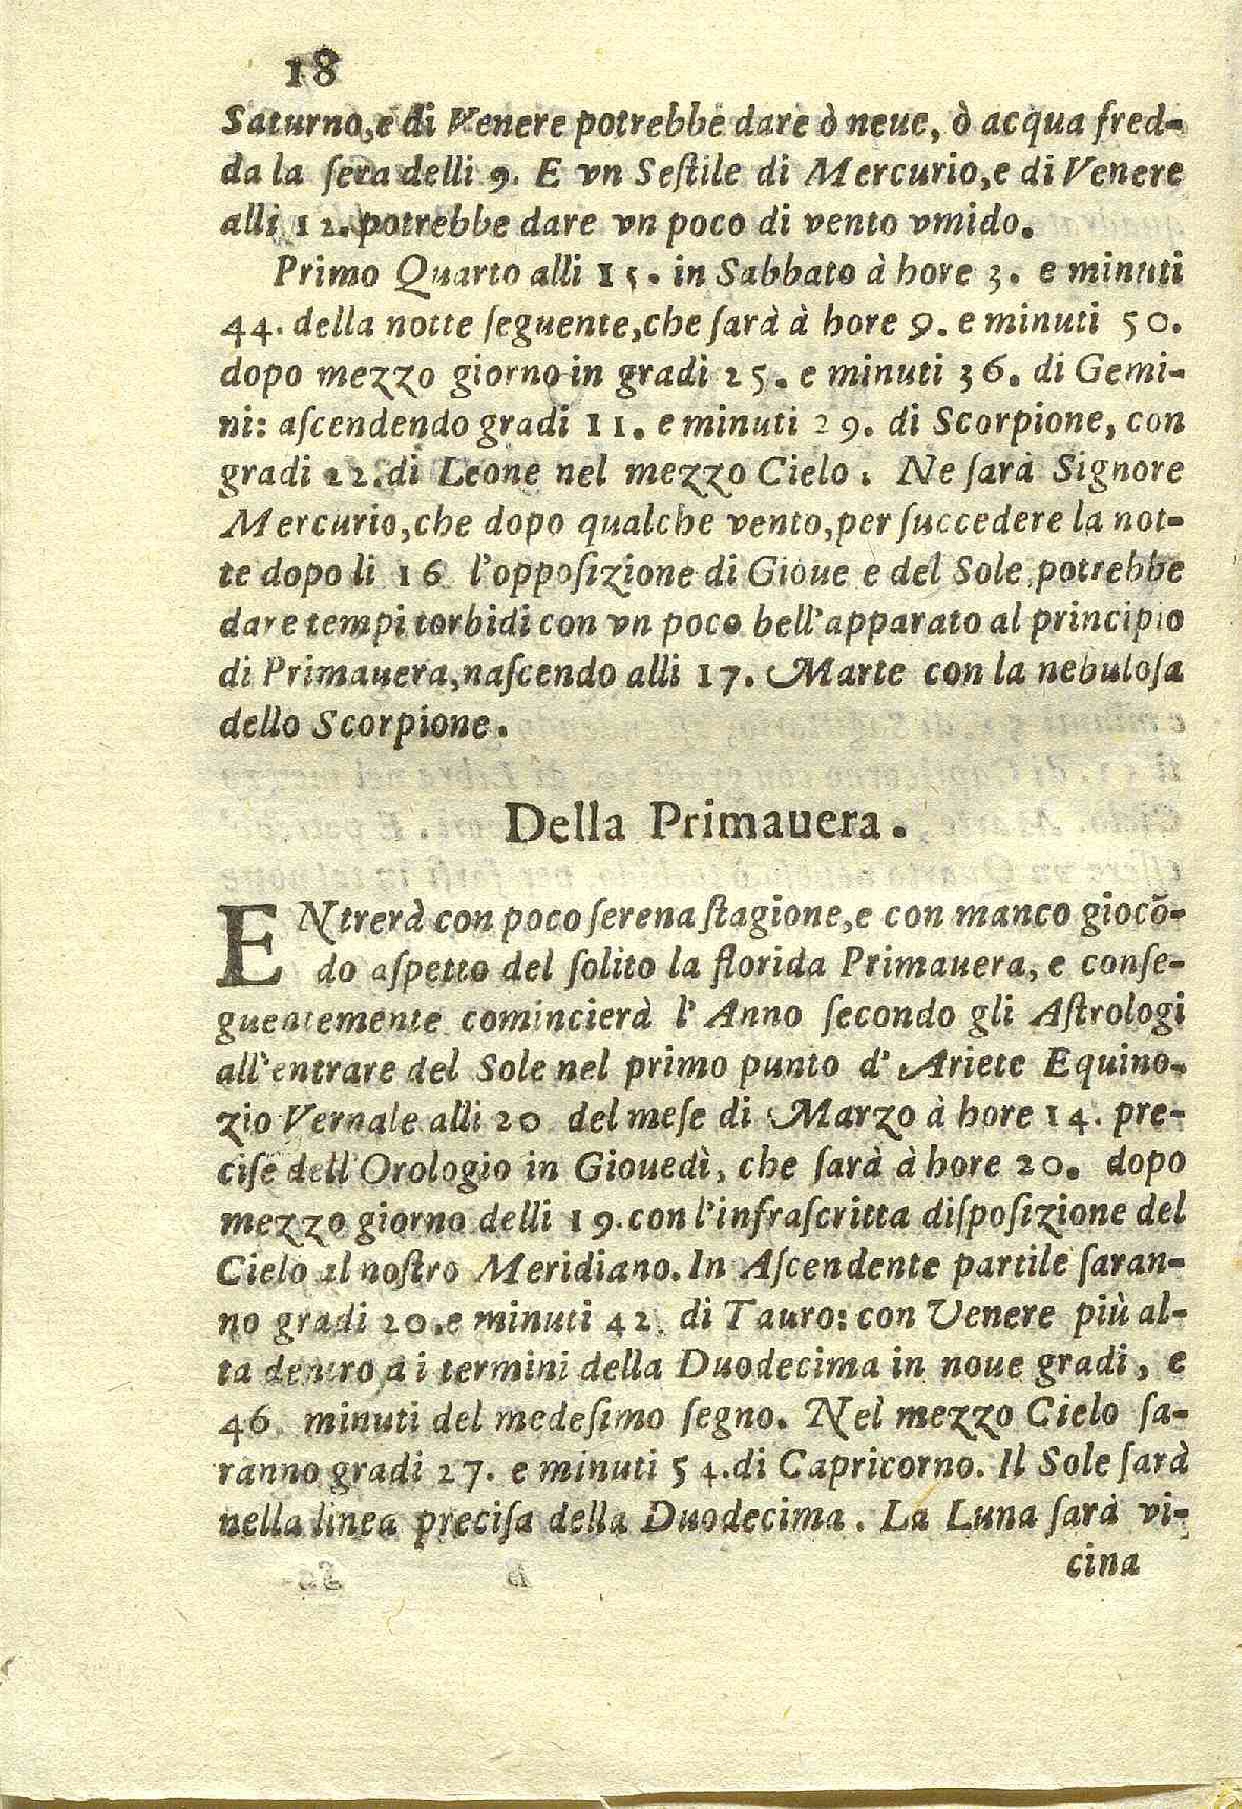 18
Saturno, e di Venere potrebbe dare ò neue, ò acqua fred-
da la ſera delli 9. E vn Seſtile di Mercurio, e di Venere
alli 12. potrebbe dare vn poco di vento vmido.
Primo Quarto alli 15. in Sabbato à hore 3. e minuti
44. della notte ſeguente, che ſarà à hore 9. e minuti 50.
dopo mezzo giorno in gradi 25. e minuti 36. di Gemi-
ni: aſcendendo gradi 11. e minuti 29. di Scorpione, con
gradi 22. di Leone nel mezzo Cielo. Ne ſarà Signore
Mercurio, che dopo qualche vento, per ſuccedere la not-
te dopo li 16 l'oppoſizione di Gioue e del Sole potrebbe
dare tempi torbidi con vn poco bell'apparato al principio
di Primauera, naſcendo alli 17. Marte con la nebuloſa
dello Scorpione.
Della Primauera.
ENtrerà con poco ſerena ſtagione, e con manco giocõ-
do aſpetto del ſolito la florida Primauera, e conſe-
guentemente comincierà l'Anno ſecondo gli Aſtrologi
all'entrare del Sole nel primo punto d'Ariete Equino-
zio Vernale alli 20 del meſe di Marzo à hore 14. pre-
ciſe dell'Orologio in Giouedì, che ſarà à hore 20. dopo
mezzo giorno delli 19. con l'infraſcritta diſpoſizione del
Cielo al noſtro Meridiano. In Aſcendente partile ſaran-
no gradi 20. e minuti 42. di Tauro: con Venere più al-
ta dentro a i termini della Duodecima in noue gradi, e
46. minuti del medeſimo ſegno. Nel mezzo Cielo ſa-
ranno gradi 27. e minuti 54. di Capricorno. Il Sole ſarà
nella linea preciſa della Duodecima. La Luna ſarà vi-
cina